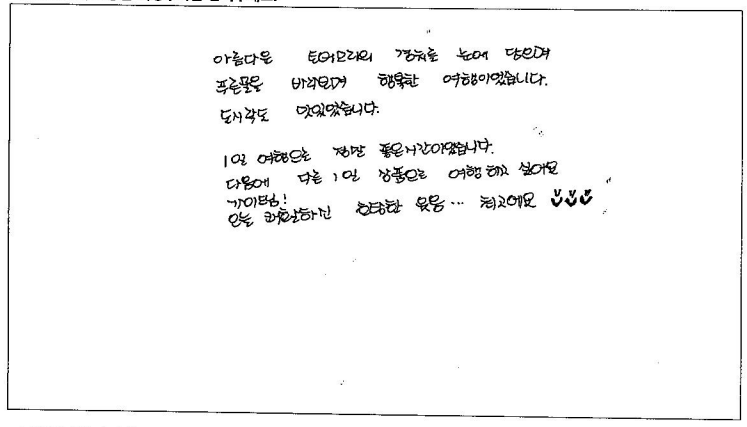 아름다운 토어모리의 경치를 눈에 담으며
푸른물을 바라보며 행복한 여행이었습니다.
도시락도 맛있었습니다.
1일 여행으로 정말 좋은시간이었습니다.
다음에 다른 1일 상품으로 여행 하고 싶어요
가이드님!
오늘 쾌활하신 호탕한 웃음... 최고에요